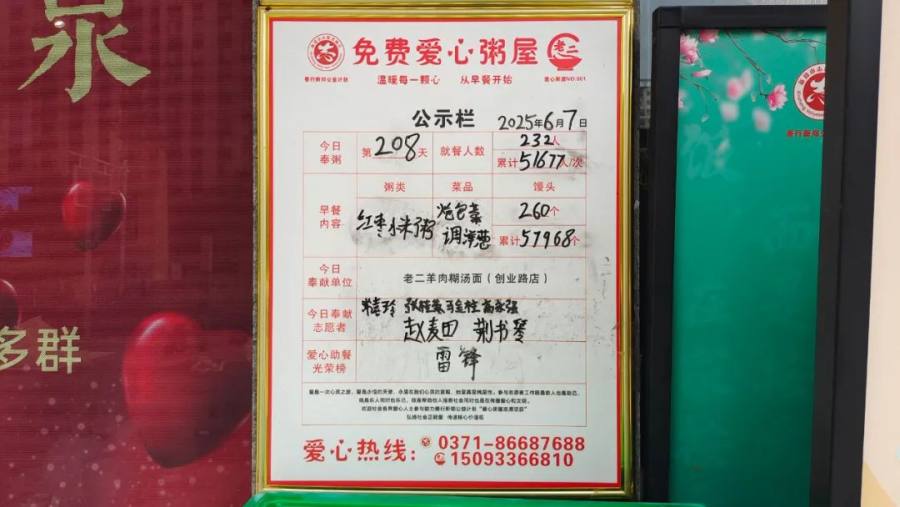 泉
多群
免费爱心粥屋
老二
善行新郑公益计划
温暖每一颗心 从早餐开始
爱心粥屋NO:001
公示栏
2025年6月7日
今日奉粥
第208天
就餐人数
232人
累计51677人/次
早餐内容
粥类
菜品
馒头
红枣小米粥
炝包菜
调洋葱
260个
累计57968个
今日奉献单位
老二羊肉糊汤面（创业路店）
今日奉献志愿者
赵麦田 荆书琴
爱心助餐光荣榜
雷锋
弘扬社会正能量 传递核心价值观
爱心热线：
0371-86687688
15093366810